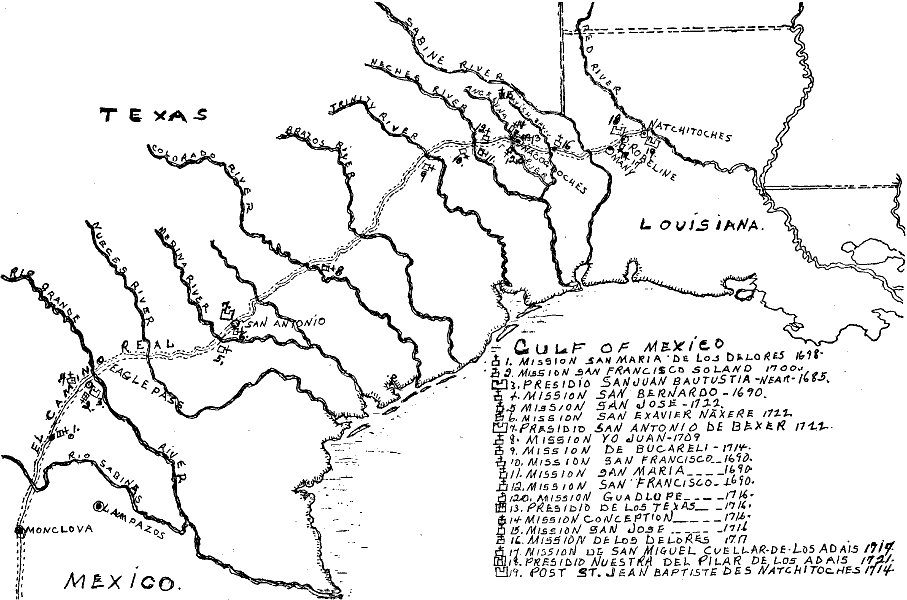 TEXAS
SABINE RIVER
RED RIVER
NECHER RIVER
TRINITY RIVER
BRAZOS RIVER
COLORADO RIVER
NATCHITOCHES
ROBELINE
MANY
LOUISIANA.
NUECES RIVER
MEDINA RIVER
RIO GRANDE
RIVER
SAN ANTONIO
EL CAMINO REAL
EAGLE PASS
RIO SABINAS
LAMPAZOS
MONCLOVA
MEXICO.
GULF OF MEXICO
1. MISSION SAN MARIA DE LOS DELORES 1698.
2. MISSION SAN FRANCISCO SOLAND 1700.
3. PRESIDIO SANJUAN BAUTUSTIA-NEAR-1685.
4. MISSION SAN BERNARDO-1690.
5 MISSION SAN JOSE-1722.
6. MISSION SAN EXAVIER NAXERE 1722
7. PRESIDIO SAN ANTONIO DE BEXER 1722.
8. MISSION YO JUAN-1709
9. MISSION DE BUCARELI-1714.
10. MISSION SAN FRANCISCO 1690.
11. MISSION SAN MARIA____1690
12. MISSION SAN FRANCISCO-1690.
120. MISSION GUADLUPE___-1716-
13. PRESIDIO DE LOS TEXAS__-1716.
14 MISSION CONCEPTION____-1716-
15. MISSION SAN JOSE____-1716
16. MISSION DELOS DELORES 1717
17. MISSION DE SAN MIGUEL CUELLAR-DE-LOS ADAIS 1717.
18. PRESIDIO NUESTRA DEL PILAR DE LOS ADAIS 1721.
19. POST ST. JEAN BAPTISTE DES NATCHITOCHES 1714